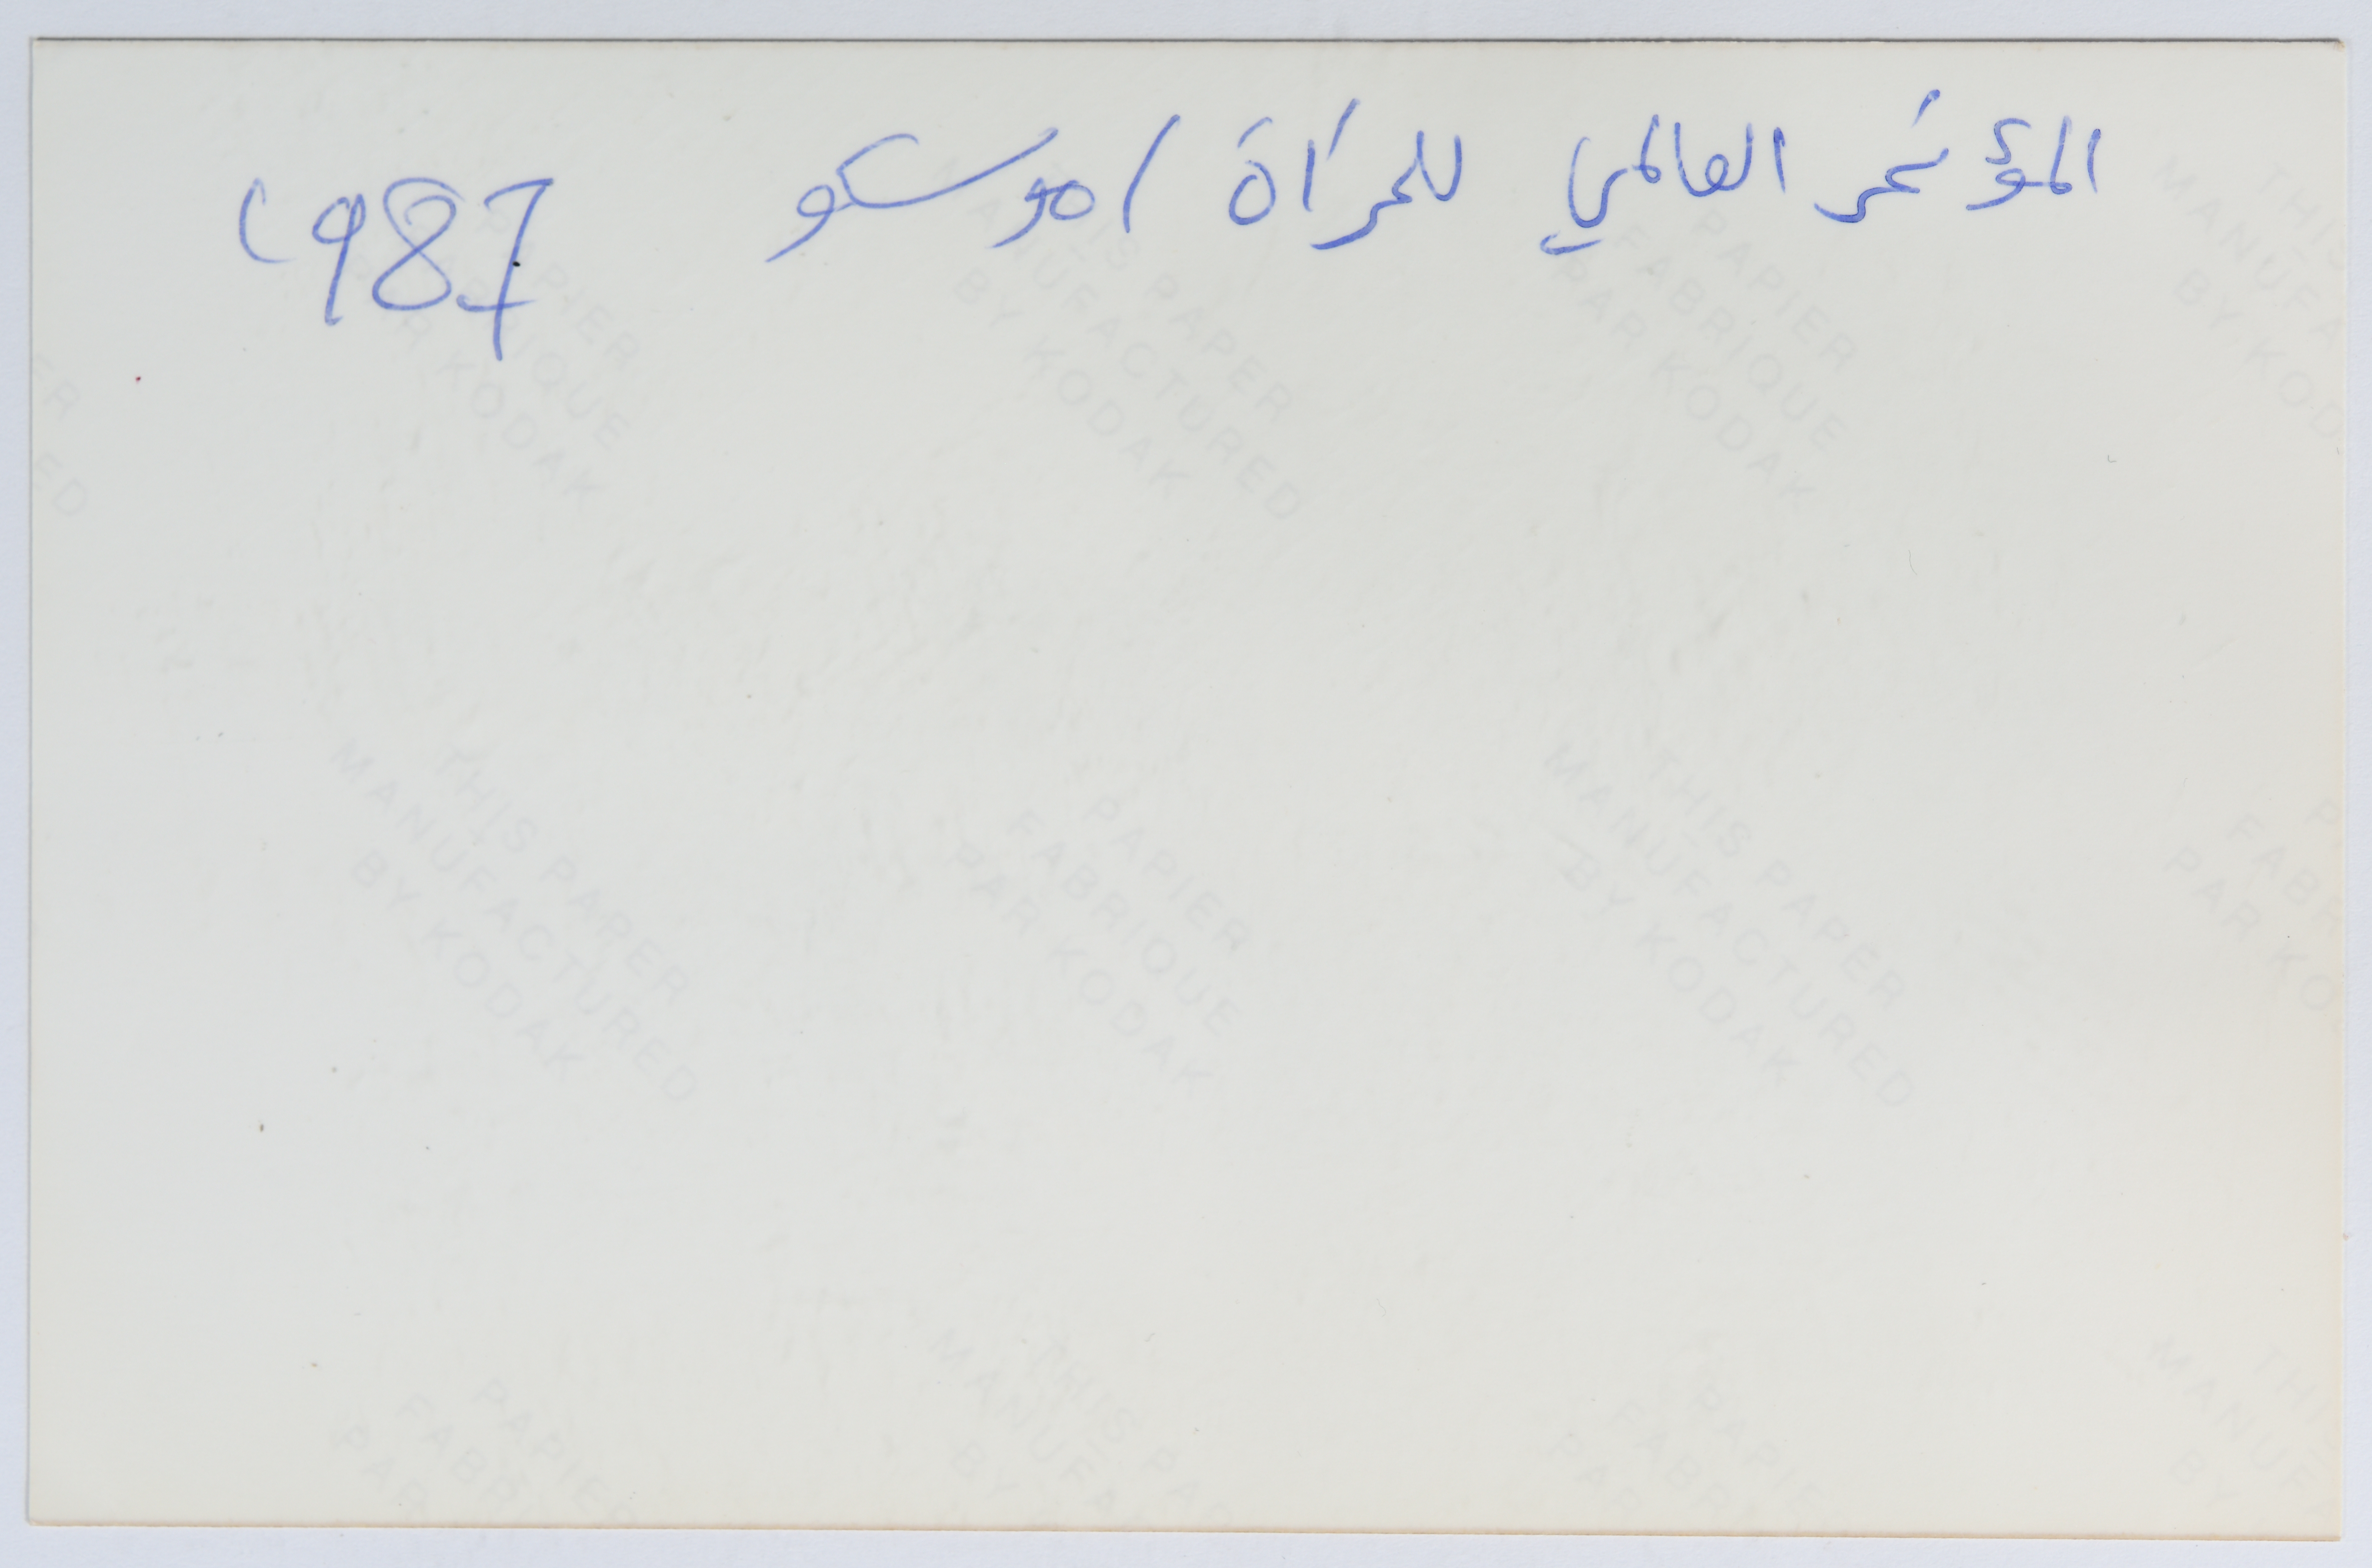 المؤتمر العالمي للمرأة / موسكو 1987
THIS PAPER
MANUFACTURED
BY KODAK
PAPIER
FABRIQUE
PAR KODAK